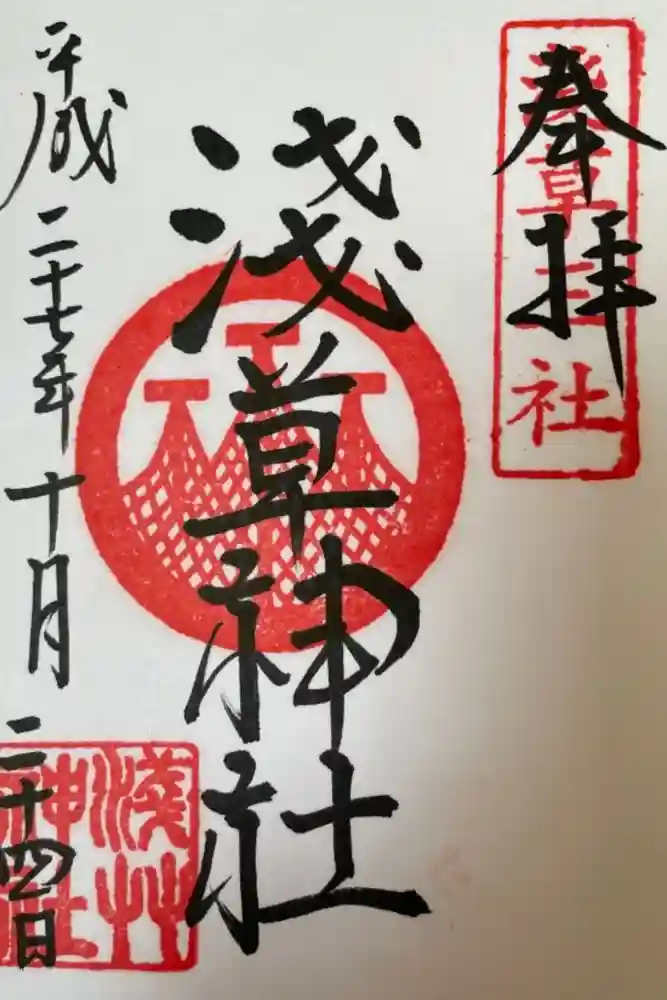 奉拝
浅草三社
淺草神社
平成二十七年十月二十四日
淺草神社